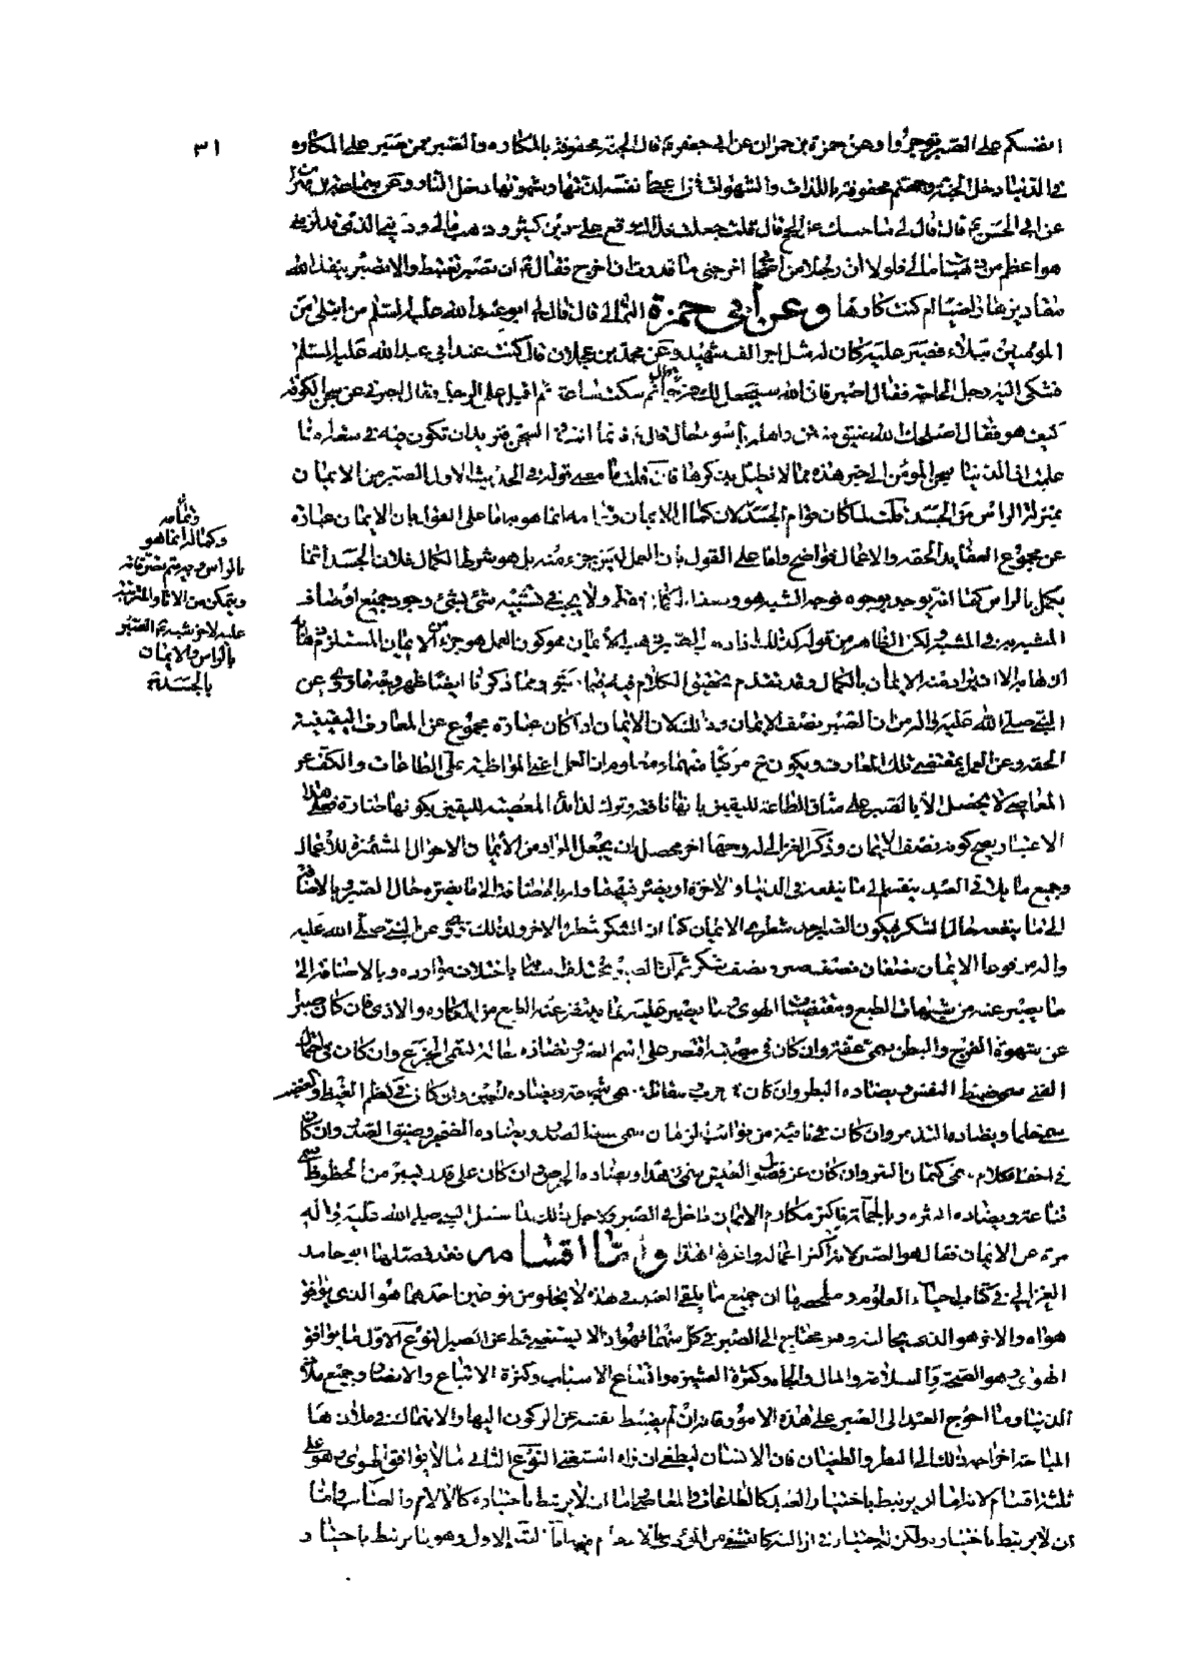 ٣١
انفسكم على الصبر توجروا وعن حمزة بن حمران عن ابي جعفر ع قال الجنة محفوفة بالمكاره والصبر فمن صبر على المكاره
في الدنيا دخل الجنة وجهنم محفوفة باللذات والشهوات فمن اعطى نفسه لذتها وشهوتها دخل النار وعن سماعة بن مهران
عن ابي الحسن ع قال قال لي ما حبسك عن الحج قال قلت جعلت فداك وقع علي دين كثير وذهب مالي وديني الذي قد لزمني
هو اعظم من ذهاب مالي فلولا ان رجلا من اصحابنا اخرجني ما قدرت ان اخرج فقال لي ان تصبر تغتبط والا تصبر ينفذ الله
مقاديره راضيا ام كنت كارها وعن ابي حمزة الثمالي قال قال ابو عبد الله عليه السلم من ابتلى من
المؤمنين ببلاء فصبر عليه كان له مثل اجر الف شهيد وعن محمد بن عجلان قال كنت عند ابي عبد الله عليه السلم
فشكى اليه رجل الحاجة فقال اصبر فان الله سيجعل لك فرجا قال ثم سكت ساعة ثم اقبل على الرجل فقال اخبرني عن سجن الكوفة
كيف هو فقال اصلحك الله ضيق منتن واهله باسوء حال قال فانما انت في السجن فتريد ان تكون فيه في سعة اما
علمت ان الدنيا سجن المؤمن الى غير هذه مما لا نطيل بذكرها فان قلت ما معنى قوله في الحديث الاول الصبر من الايمان
بمنزلة الراس من الجسد قلت لما كان قوام الجسد كان كمال الايمان وتمامه انما هو به اما على القول بان الايمان عبارة
عن مجموع العقايد الحقه والاعمال فواضح واما على القول بان العمل ليس جزء منه بل هو شرط الكمال فلان الجسد انما
يكمل بالراس كما انه يوجد بوجوده فوجه الشبه هو وصف الكمال فقط ولا يجب في تشبيه شئ بشئ وجود جميع اوصاف
المشبه به في المشبه لكن الظاهر من قوله كذلك اذا ذهب الصبر ذهب الايمان هو كون العمل جزء من الايمان المستلزم
الا ان يراد منه الايمان بالكمال وقد تقدم تحقيق الكلام فيه ومما ذكرنا ايضا ظهر وجه ما روي عن
النبي صلى الله عليه واله من ان الصبر نصف الايمان وذلك لان الايمان اذا كان عبارة مجموع عن المعارف اليقينية
الحقه وعن العمل بمقتضى تلك المعارف ويكون ح مركبا منهما ومعلوم ان العمل اعني المواظبة على الطاعات والكف عن
المعاصي لا يحصل الا بالصبر على مشاق الطاعة لليقين بانها نافعة وترك لذائذ المعصية لليقين بكونها ضارة فعلى هذا
الاعتبار يصح كونه نصف الايمان وذكر الغزالي له وجها اخر محصله ان يجعل المراد من الايمان الاحوال المثمرة للاعمال
وجميع ما يلاقي العبد ينقسم الى ما ينفعه في الدنيا والاخرة او يضره فيهما وله بالاضافة الى ما يضره حال الصبر وبالاضافة
الى ما ينفعه حال الشكر فيكون الصبر احد شطري الايمان كما ان الشكر شطره الاخر ولذلك روي عن النبي صلى الله عليه
واله مرفوعا الايمان نصفان نصف صبر ونصف شكر ثم ان الصبر يختلف اسماؤه باختلاف موارده وبالاضافة الى
ما يصبر عنه من مشتهيات الطبع ومقتضيات الهوى وما يصبر عليه مما يتنفر عنه الطبع من المكاره والاذى فان كان صبرا
عن شهوة الفرج والبطن سمي عفة وان كان في مصيبة اقتصر على اسم الصبر ويضاده حالة تسمى الجزع وان كان في احتمال
الغنى سمي ضبط النفس ويضاده البطر وان كان في حرب ومقاتلة سمي شجاعة ويضاده الجبن وان كان في كظم الغيظ والغضب
سمي حلما ويضاده التذمر وان كان في نائبة من نوائب الزمان سمي سعة الصدر ويضاده الضجر وضيق الصدر وان كان
في اخفاء كلام سمي كتمان السر وان كان عن فضول العيش سمي زهدا ويضاده الحرص وان كان على قدر يسير من الحظوظ سمي
قناعة ويضاده الشره وبالجملة فاكثر مكارم الايمان داخل في الصبر ولاجل ذلك لما سئل النبي صلى الله عليه واله
مرة عن الايمان فقال هو الصبر لانه اكثر اعماله واعرفها هذا واما اقسامه فقد فصلها ابو حامد
الغزالي في كتاب احياء العلوم وملخصها ان جميع ما يلقى العبد في هذه لا يخلو من نوعين احدهما هو الذي يوافق
هواه والاخر هو الذي يخالفه وهو محتاج الى الصبر في كل منهما فهو اذا لا يستغني قط عن الصبر النوع الاول ما يوافق
الهوى وهو الصحة والسلامة والمال والجاه وكثرة العشيرة واتساع الاسباب وكثرة الاتباع والانصار وجميع ملاذ
الدنيا وما احوج العبد الى الصبر على هذه الامور فانه ان لم يضبط نفسه عن الركون اليها والانهماك في ملاذها
المباحة اخرجه ذلك الى البطر والطغيان فان الانسان ليطغى ان راه استغنى النوع الثاني ما لا يوافق الهوى وهو على
ثلثة اقسام لانه اما ان يرتبط باختيار العبد كالطاعات والمعاصي اما ان لا يرتبط باختياره كالالام والمصائب واما
ان لا يرتبط باختياره ولكن له اختيار في ازالته كالتشفي من المؤذي بالانتقام منه اما القسم الاول وهو ما يرتبط باختياره
وتمامه
وكماله انما هو
بالراس وبه يتم تصرفاته
ويتمكن من الاثار المترتبة
عليه لاجرم شبه ع الصبر
بالراس والايمان
بالجسد منه